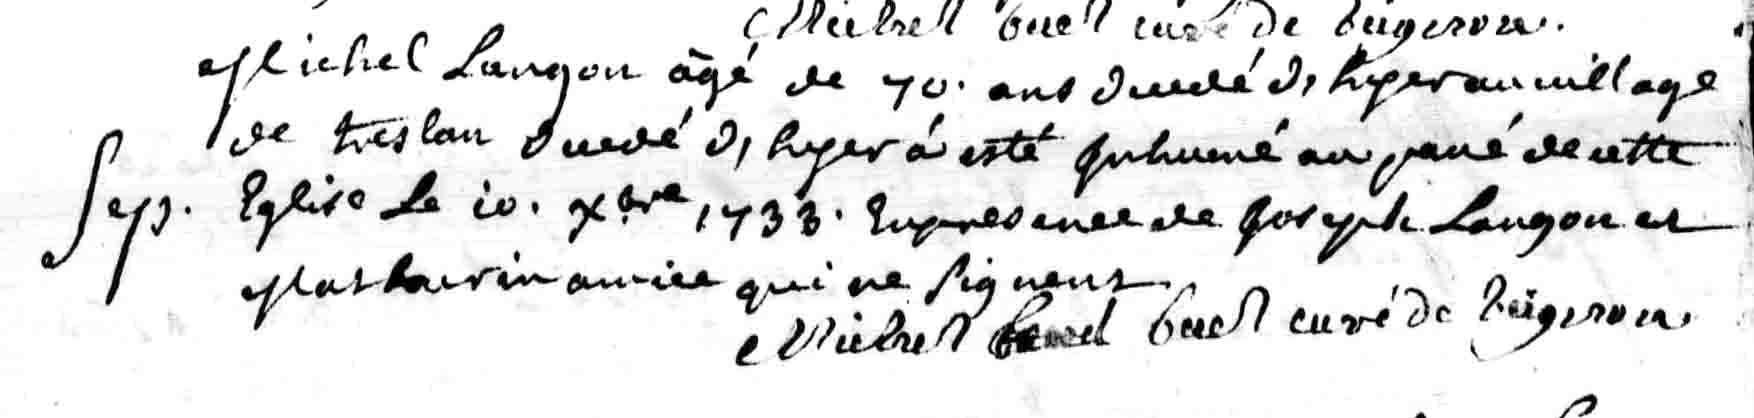 Michel buel curé de beigeron.
Michel Langon âgé de 70. ans decedé d'hyer au village
de treslan decedé d'hyer a esté Inhumé au pavé de cette
Sep. Eglise Le 10. Xbre 1733. En presence de Joseph Langon et
Mathurin amice qui ne signent
Michel buel curé de